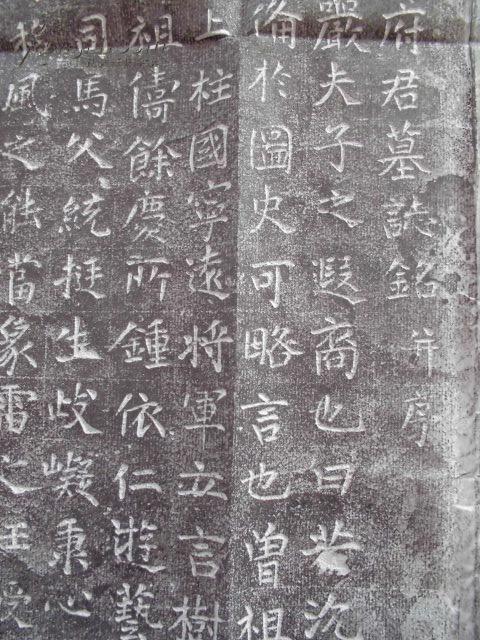 府君墓誌銘并序
嚴夫子之遐裔也曰若沉
備於圖史可略言也曾祖
上柱國寧遠將軍立言樹
祖儔餘慶所鍾依仁遊藝
司馬父統挺生歧嶷秉心
穆風之能當彖雷之任受